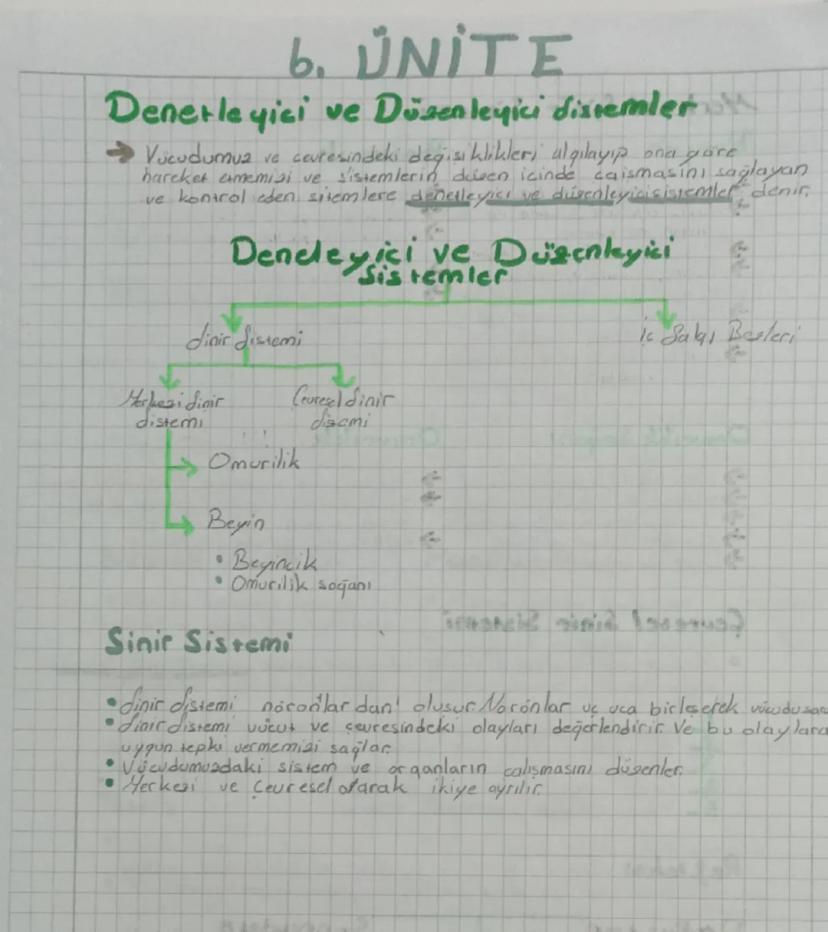 6. ÜNİTE
Denetleyici ve Düzenleyici Sistemler
Vücudumuz ve çevresindeki değişiklikleri algılayıp ona göre
hareket etmemizi ve sistemlerin düzen içinde çalışmasını sağlayan
ve kontrol eden sitemlere denetleyici ve düzenleyici sistemler denir.
Deneleyici ve Düzenleyici
Sistemler
Sinir Sistemi
İç Salgı Bezleri
Merkezi Sinir
Sistemi
Çevresel Sinir
Sistemi
Omurilik
Beyin
• Beyincik
• Omurilik soğanı
Sinir Sistemi
• Sinir Sistemi nöronlardan oluşur. Nöronlar uç uca birleşerek
• Sinir Sistemi vücut ve çevresindeki olayları değerlendirir. Ve bu olaylara
uygun tepki vermemizi sağlar.
• Vücudumuzdaki sistem ve organların çalışmasını düzenler.
• Merkezi ve Çevresel olarak ikiye ayrılır.